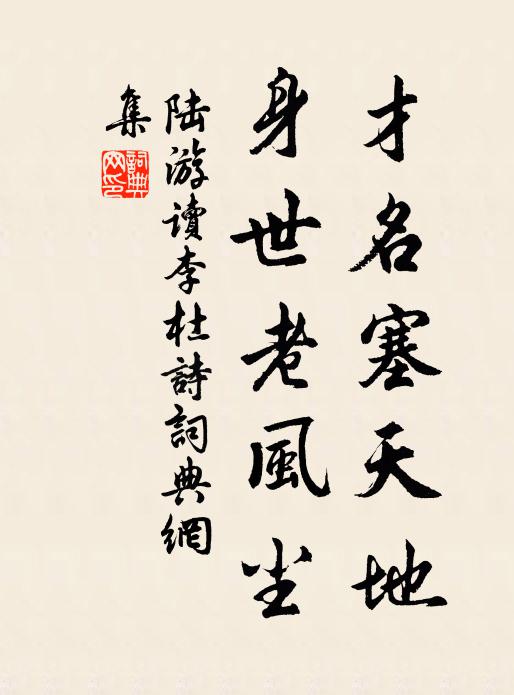 才名塞天地
身世老風尘
陆游讀李杜詩詞典網
集
詞典
网印